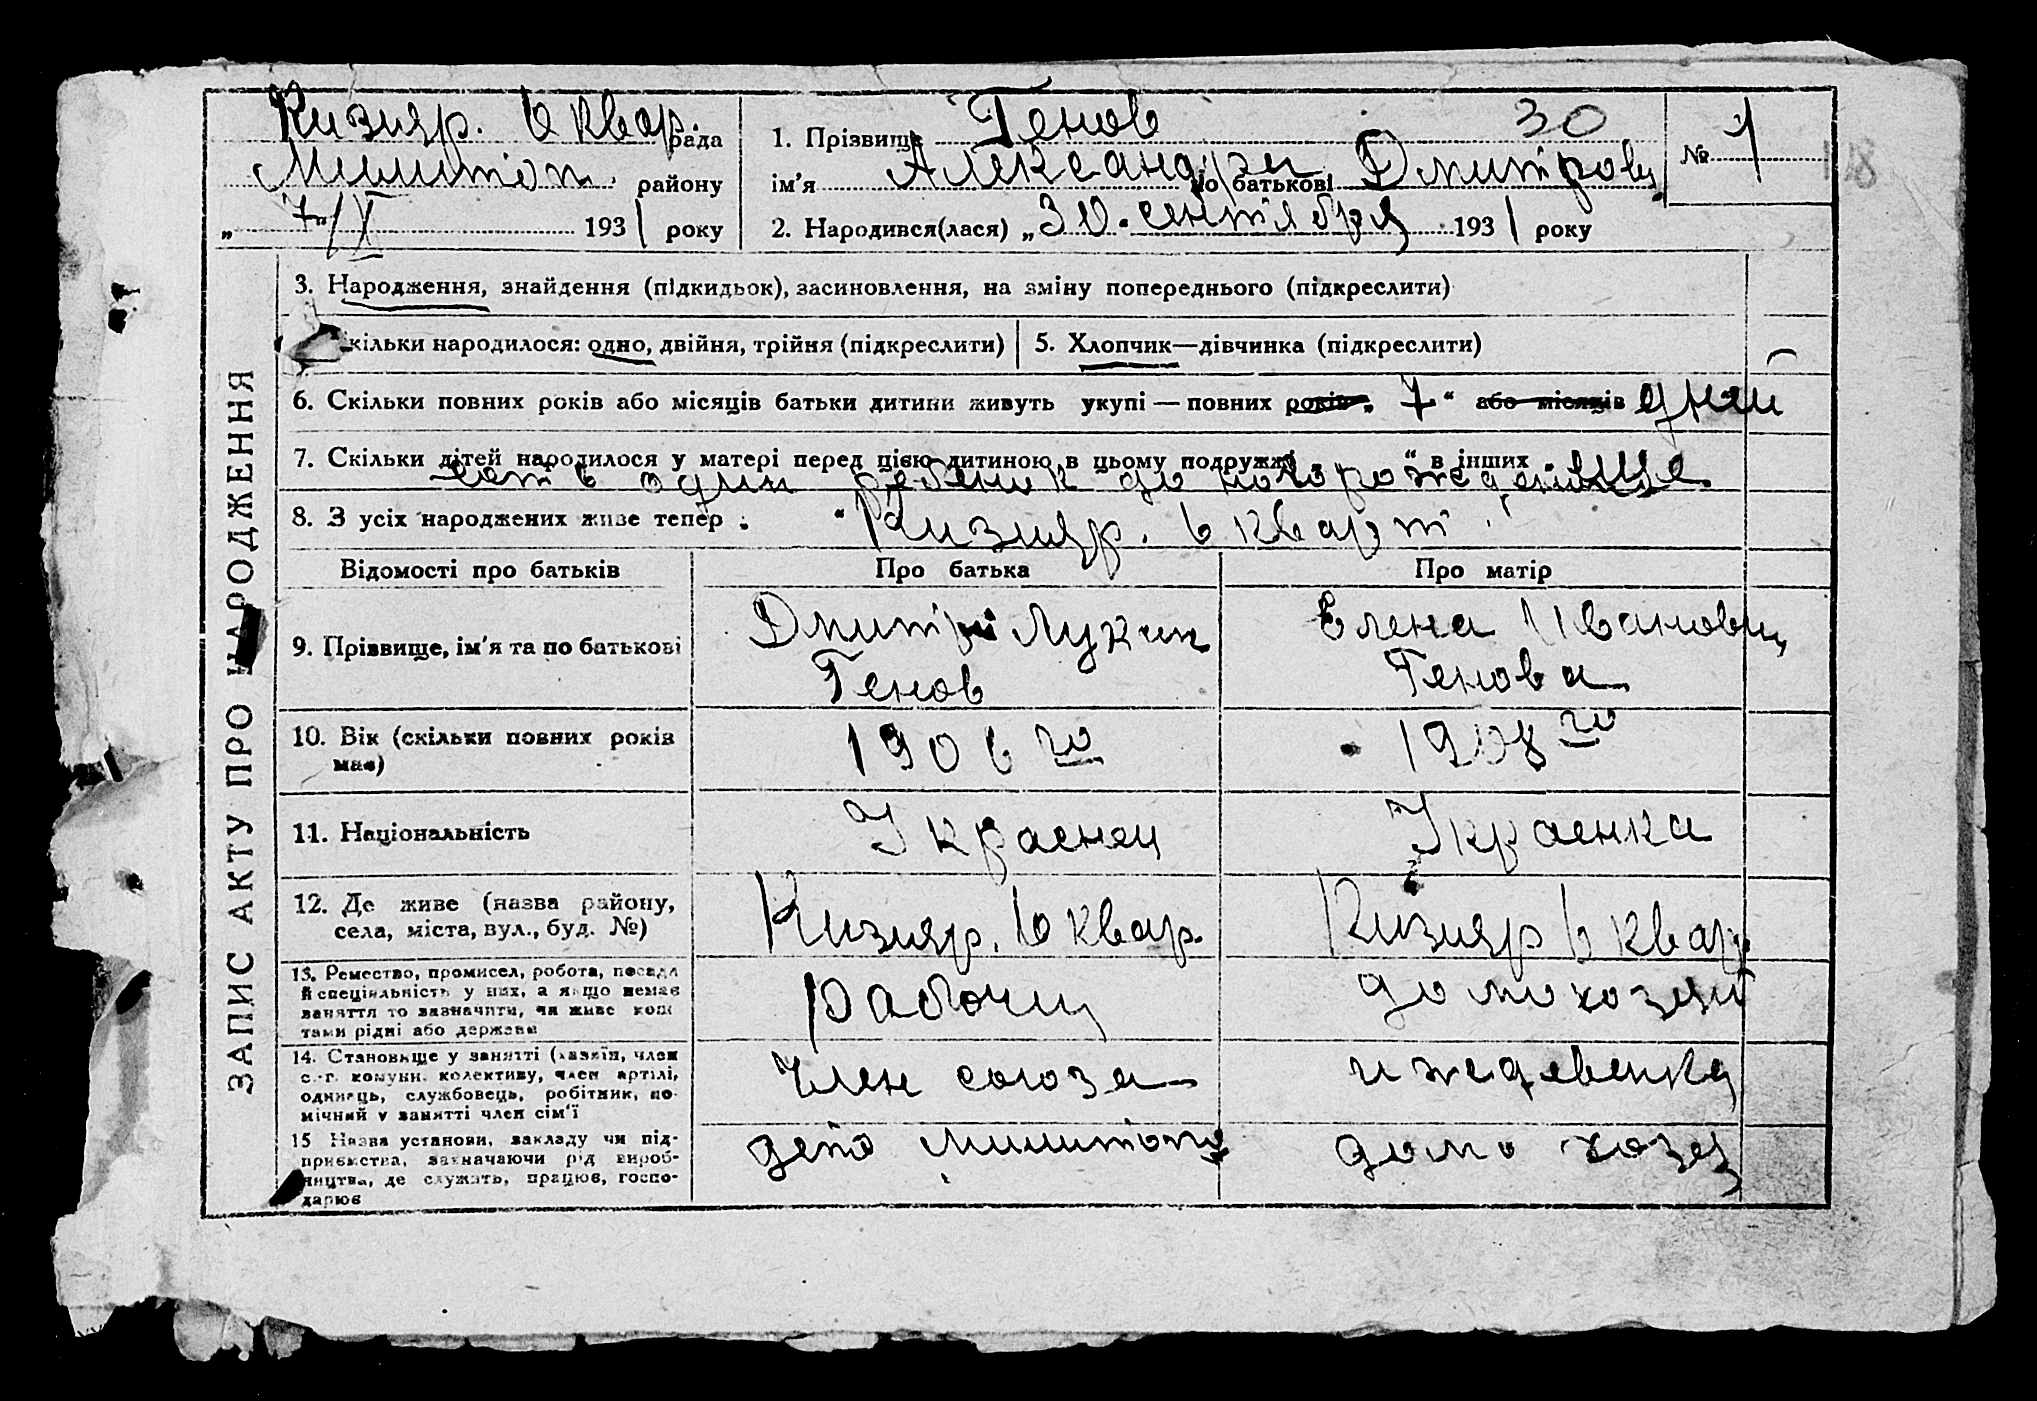 Кизияр. 6 квар. рада
Мелитоп. району
„ 7/X 1931 року
1. Прізвище Генов 30
ім'я Александри по батькові Дмитров
2. Народився(лася) „30. сентября 1931 року
№ 1
118
ЗАПИС АКТУ ПРО НАРОДЖЕННЯ
3. Народження, знайдення (підкидьок), засиновлення, на зміну попереднього (підкреслити)
кільки народилося: одно, двійня, трійня (підкреслити)
5. Хлопчик—дівчинка (підкреслити)
6. Скільки повних років або місяців батьки дитини живуть укупі — повних років „ 7 “ або місяців дней
7. Скільки дітей народилося у матері перед цією дитиною в цьому подружжі “ в інших
есть один ребенок до
8. З усіх народжених живе тепер : “ Кизияр. 6 кварт.
Відомості про батьків
Про батька
Про матір
9. Прізвище, ім'я та по батькові
Дмитри Лукич
Генов
Елена Ивановн
Генова
10. Вік (скільки повних років має)
1906 го
1908 го
11. Національність
Украенец
Украенка
12. Де живе (назва району, села, міста, вул., буд. №)
Кизияр. 6 квар.
Кизияр 6 квар
13. Ремество, промисел, робота, посада
й спеціяльність у них, а якщо немає
заняття то зазначити, чи живе кош
тами рідні або держави
рабочи
домохозяй
14. Становище у занятті (хазяїн, член
с.-г. комуни, колективу, член артілі,
одинець, службовець, робітник, по-
мічний у занятті член сім'ї
член союза
иждевенка
15 Назва установи, закладу чи під-
приємства, зазначаючи рід вироб-
ництва, де служить, працює, госпо-
дарює
депо Мелитопя
домо хозя